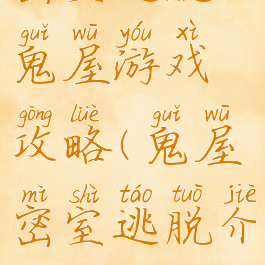 guǐ wū yóu xì
鬼屋游戏
gōng lüè guǐ wū
攻略(鬼屋
mì shì táo tuō jiè
密室逃脱介